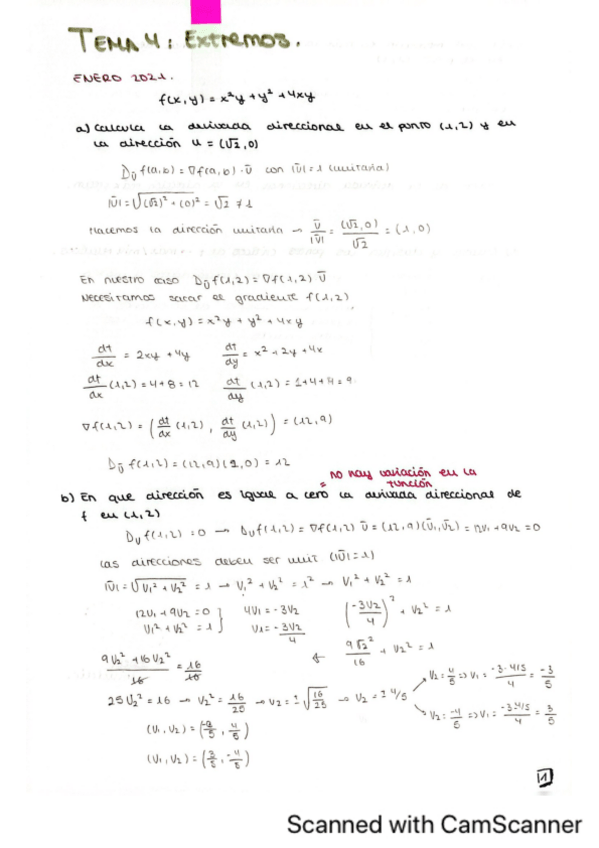 TEMA 4: Extremos.
ENERO 2021.
f(x,y) = x²y + y² + 4xy
a) Calcula la derivada direccional en el punto (1,2) y en
la dirección u = (√2, 0)
Dū f(a,b) = ∇f(a,b) · ū con |ū| = 1 (unitaria)
|ū| = √(√2)² + (0)² = √2 ≠ 1
Hacemos la dirección unitaria → ū/|ū| = (√2,0)/√2 = (1,0)
En nuestro caso Dū f(1,2) = ∇f(1,2) ū
Necesitamos sacar el gradiente f(1,2)
f(x,y) = x²y + y² + 4xy
df/dx = 2xy + 4y df/dy = x² + 2y + 4x
df/dx (1,2) = 4 + 8 = 12 df/dy (1,2) = 1 + 4 + 4 = 9
∇f(1,2) = (df/dx (1,2), df/dy (1,2)) = (12,9)
Dū f(1,2) = (12,9)(1,0) = 12
= no hay variación en la función
b) En que dirección es igual a cero la derivada direccional de
f en (1,2)
Dū f(1,2) = 0 → Dū f(1,2) = ∇f(1,2) ū = (12,9)(ū₁,ū₂) = 12v₁ + 9v₂ = 0
Las direcciones deben ser unit (|ū| = 1)
|ū| = √v₁² + v₂² = 1 → v₁² + v₂² = 1² → v₁² + v₂² = 1
12v₁ + 9v₂ = 0 } 4v₁ = -3v₂ (-3v₂/4)² + v₂² = 1
v₁² + v₂² = 1 } v₁ = -3v₂/4
9v₂² + 16v₂²/16 = 16/16 ← 9v₂²/16 + v₂² = 1
25v₂² = 16 → v₂² = 16/25 → v₂ = ±√16/25 → v₂ = ± 4/5
v₂ = 4/5 => v₁ = -3·4/5/4 = -3/5
v₂ = -4/5 => v₁ = -3·4/5/4 = 3/5
(v₁,v₂) = (-3/5, 4/5)
(v₁,v₂) = (3/5, -4/5)
Scanned with CamScanner